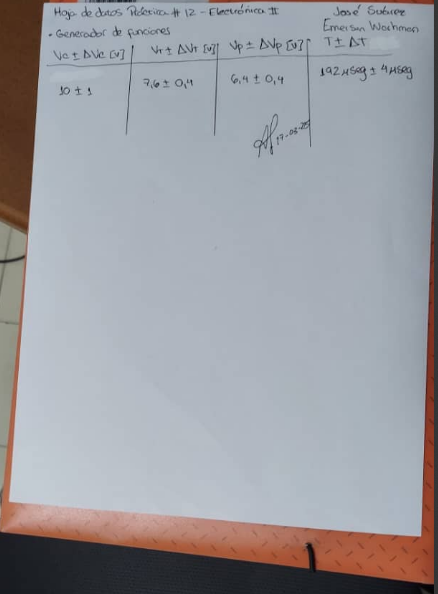 Hoja de datos Práctica # 12 - Electrónica II
José Suárez
Emerson Wachman
• Generador de funciones
Vc ± ΔVc [v] Vt ± ΔVt [v] Vp ± ΔVp [v] T ± ΔT
10 ± 1 7,6 ± 0,4 6,4 ± 0,4 192 μseg ± 4 μseg
17-03-25